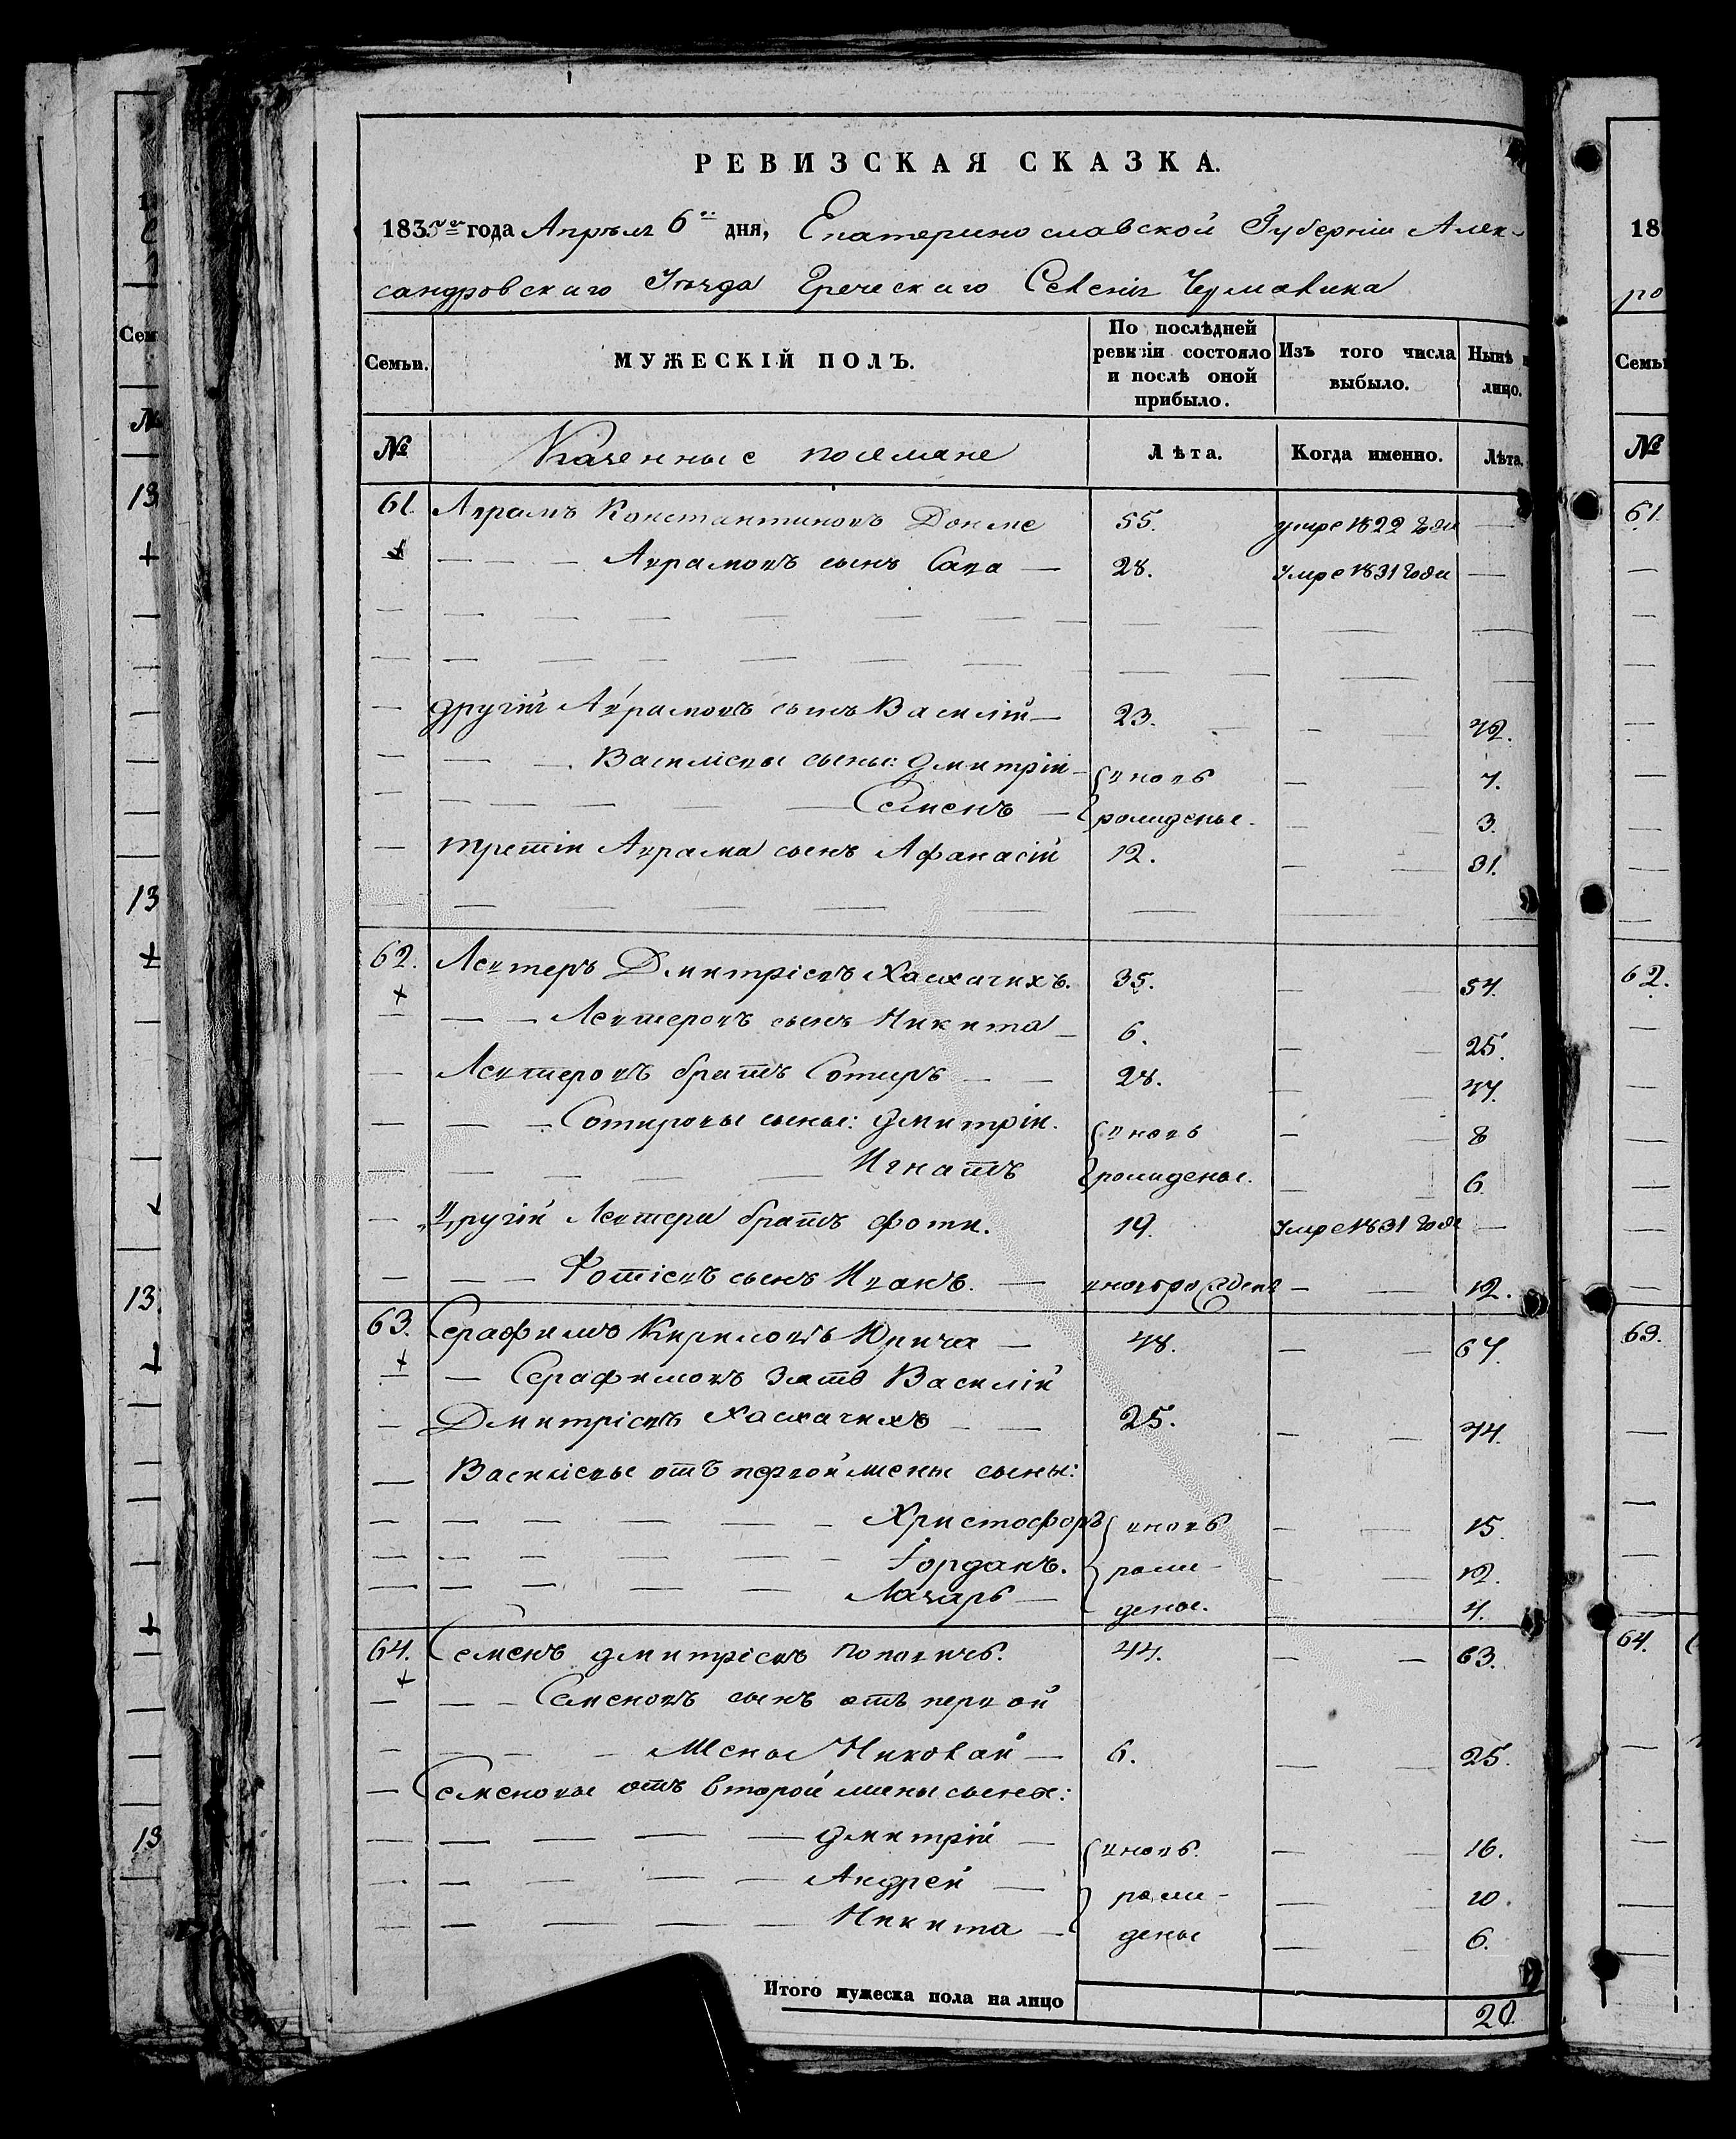 РЕВИЗСКАЯ СКАЗКА.
1835го года Апрѣля 6го дня, Екатеринославской Губерніи Алек-
сандровскаго Уѣзда Греческаго Селенія Чермалика
Семьи. МУЖЕСКІЙ ПОЛЪ. По послѣдней ревизіи состояло и послѣ оной прибыло. Изъ того числа выбыло. Нынѣ лицо.
№ Казенные поселяне Лѣта. Когда именно. Лѣта.
61. Аврамъ Константиновъ 55. умре 1822 года —
— — — Аврамовъ сынъ Сава — 28. Умре 1831 года —
— другій Аврамовъ сынъ Василій — 23. — — 42.
— — — Василіевы сыны: Дмитрій — вновь — — 7.
— — — — — Семенъ — рожденые. — — 3.
— третій Аврама сынъ Афанасій 12. — — 31.
62. Левтеръ Дмитріевъ Хасхачихъ. 35. — — 54.
— — — Левтеровъ сынъ Никита — 6. — — 25.
— Левтеровъ братъ Сотиръ — — 28. — — 47.
— — — Сотировы сыны: Дмитрій. вновь — — 8
— — — — Игнатъ рожденые. — — 6.
— Другій Левтера братъ Фоти. 19. Умре 1831 года —
— — — Фотіевъ сынъ Иванъ. — вновь рожденъ — — 12.
63. Серафимъ Кириловъ — 48. — — 67.
— — Серафимовъ зять Василій
— Дмитріевъ Хасхачихъ — — 25. — — 44.
— Василіевы отъ первой жены сыны:
— — — — — — Христофоръ вновь — — 15.
— — — — — — Іорданъ. рож- — — 12.
— — — — — — Лазарь — деные. — — 4.
64. Семенъ Дмитріевъ Поповичь. 44. — — 63.
— — — Семеновъ сынъ отъ первой
— — — — жены Николай — 6. — — 25.
— Семеновы отъ второй жены сыны:
— — — — — Дмитрій — вновь — — 16.
— — — — — Андрей — рож- — — 10.
— — — — — Никита — деные — — 6.
Итого мужеска пола на лицо 20.
18
ро
Семьи
№
61.
62.
63.
64.
Сем
№
13
13
13
13